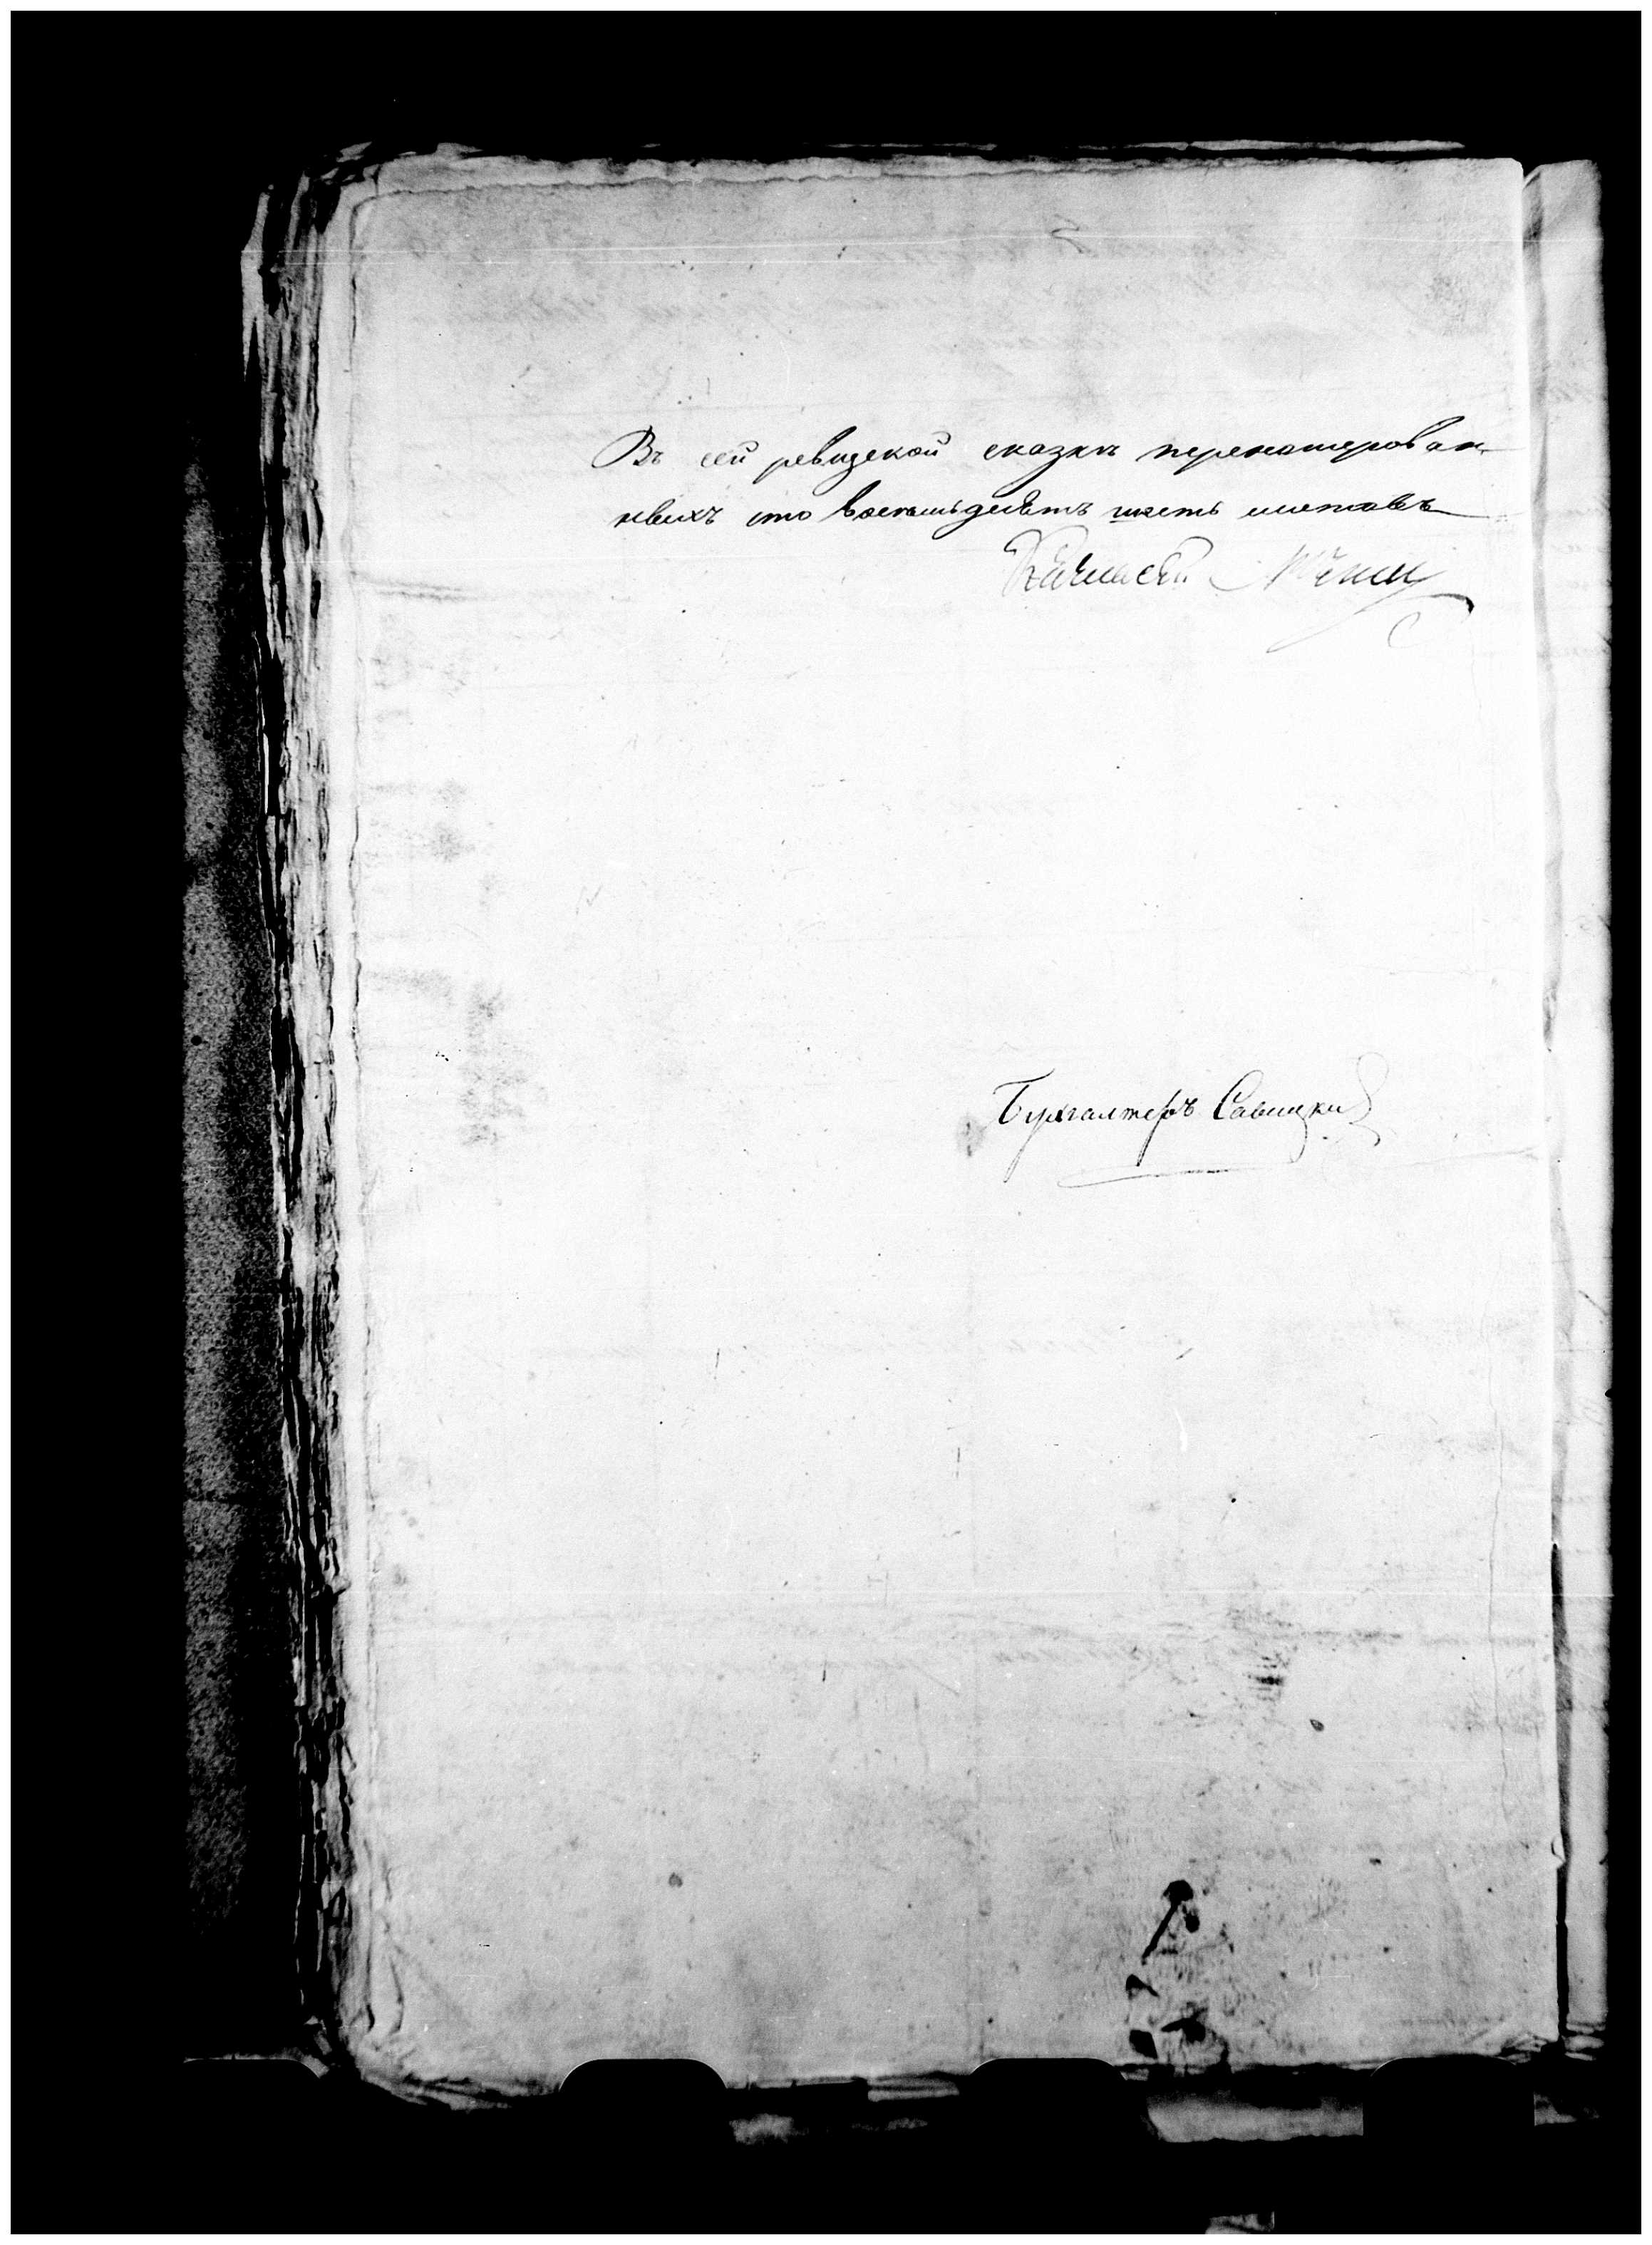 Въ сей ревизской сказкѣ перенотерован
ныхъ сто восемьдесятъ шесть листовъ
Бухгалтеръ Савицкий